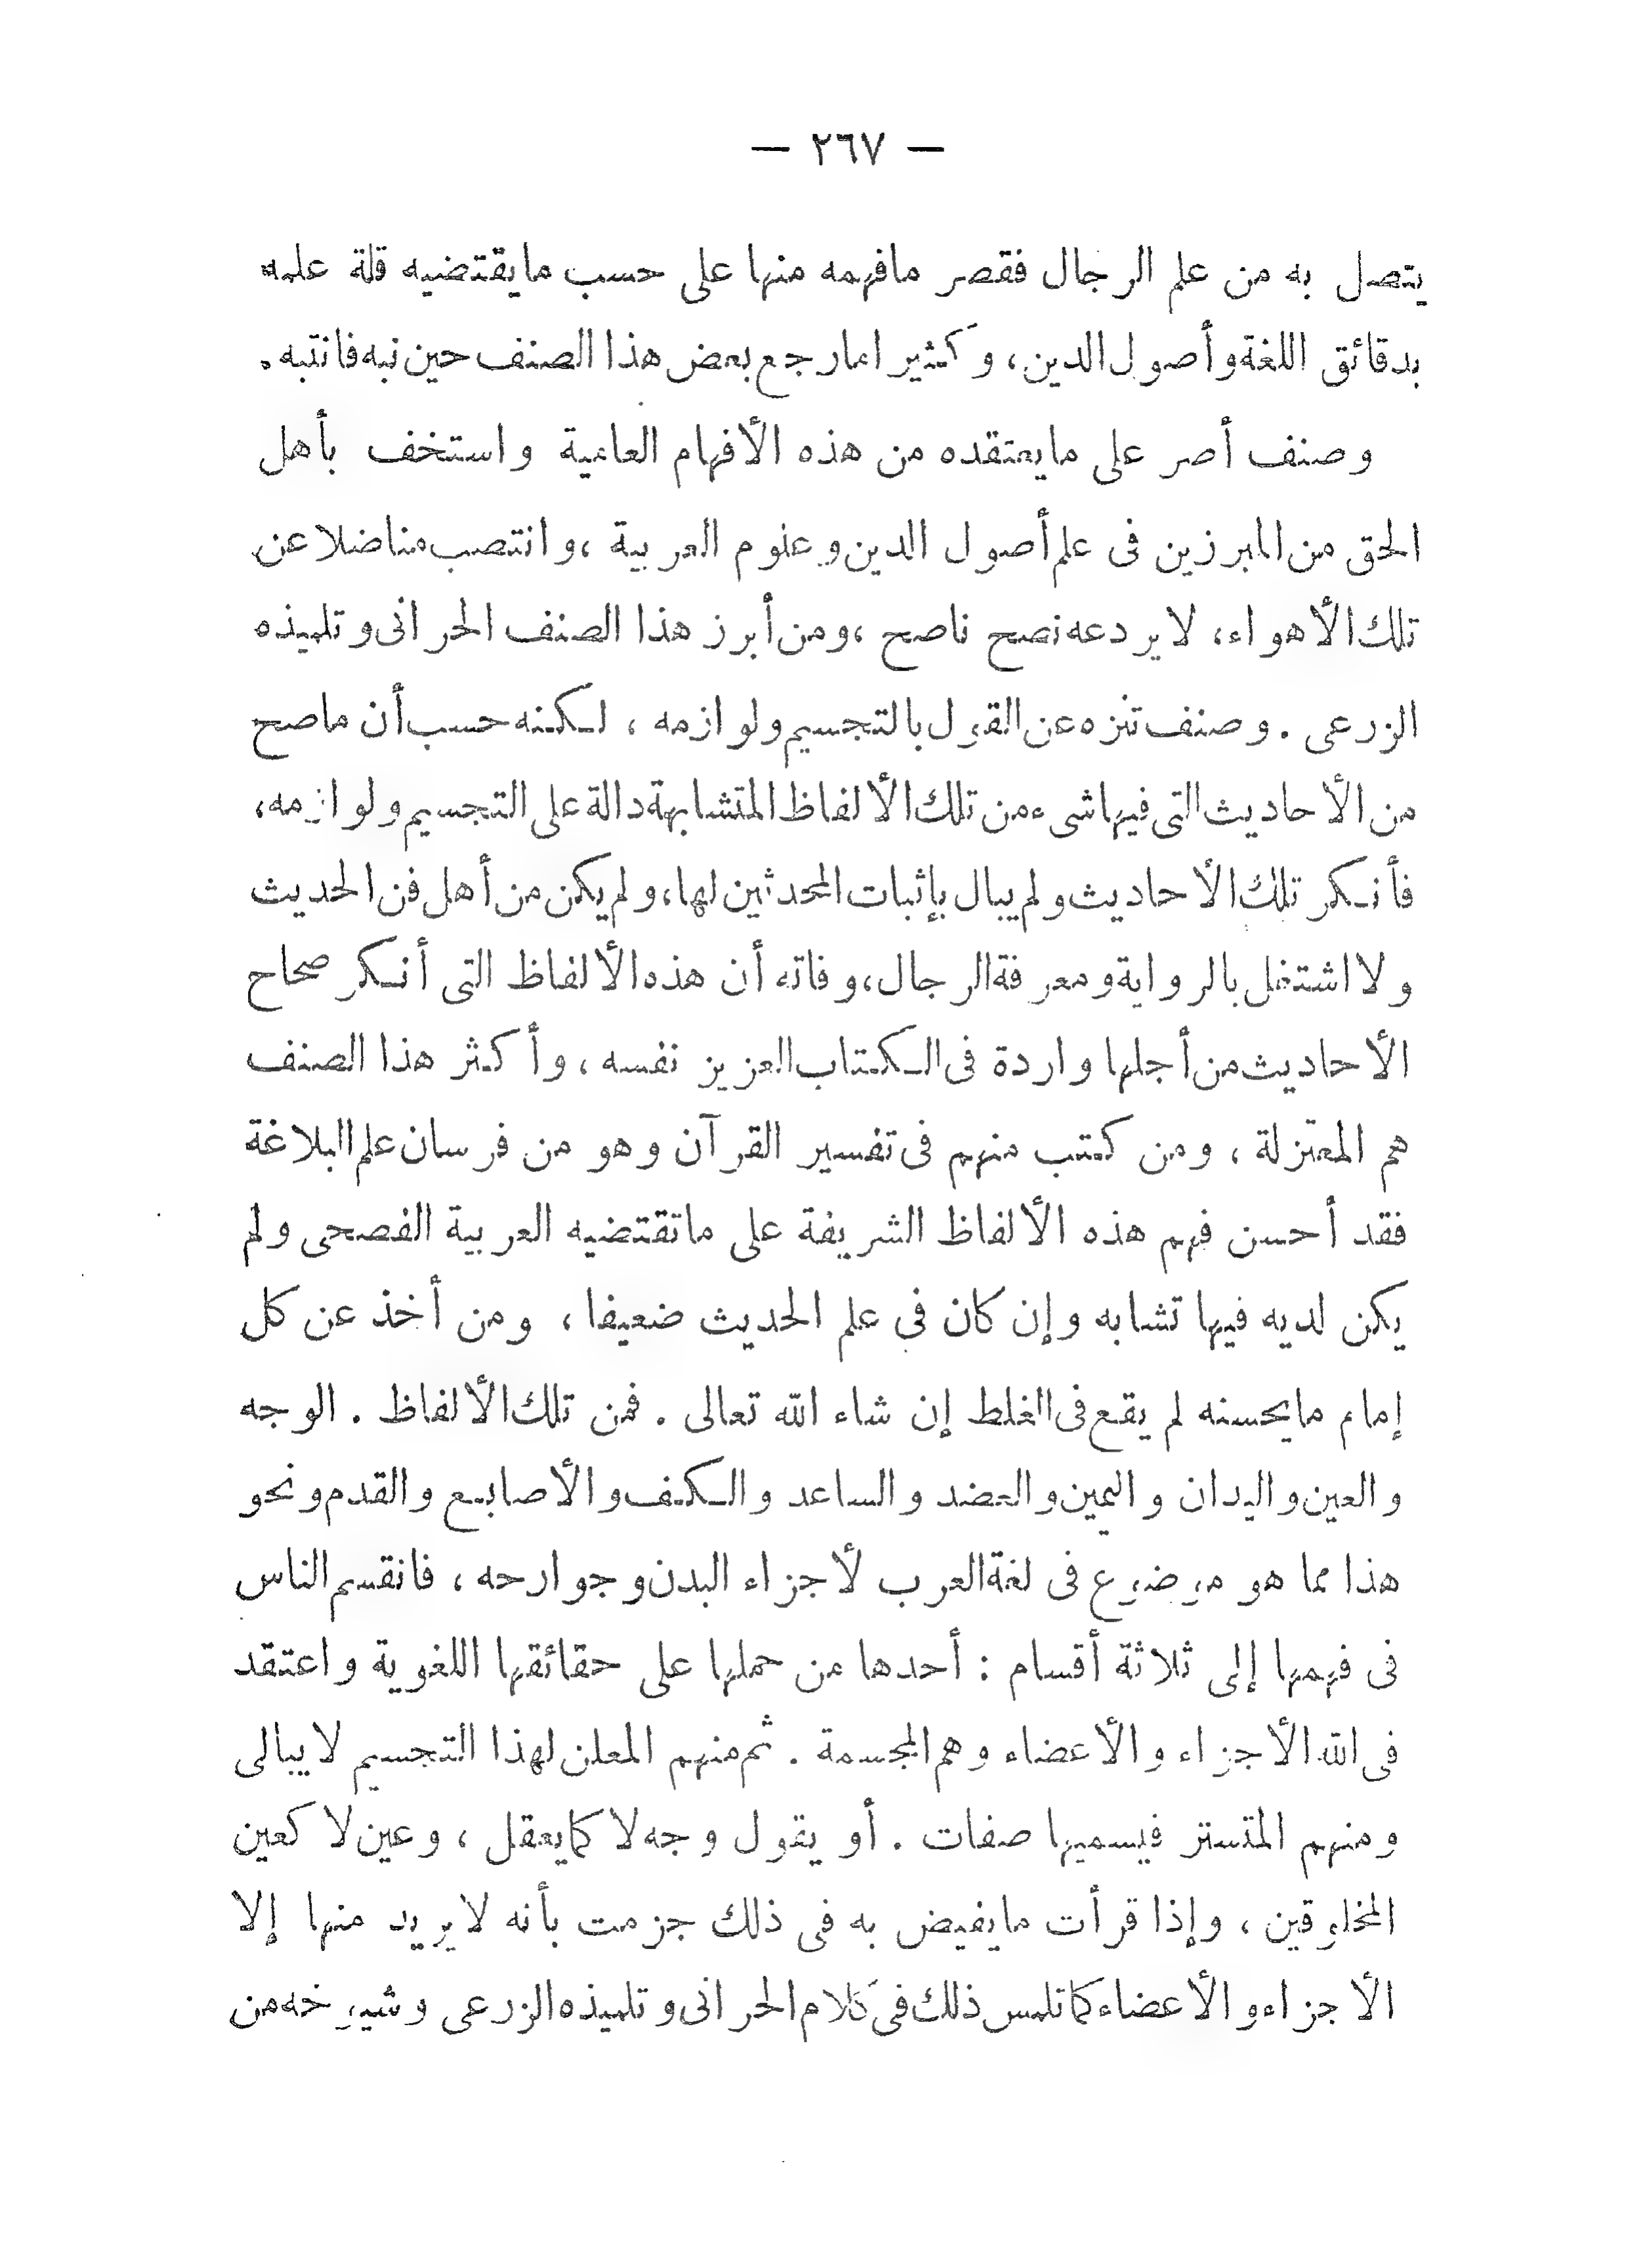 — ٢٦٧ —
يتصل به من علم الرجال فقصر مافهمه منها على حسب مايقتضيه قلة علمه
بدقائق اللغة وأصول الدين، وكثيرا مارجع بعض هذا الصنف حين نبه فانتبه.
وصنف أصر على مايعتقده من هذه الأفهام العامية واستخف بأهل
الحق من المبرزين فى علم أصول الدين وعلوم العربية ، وانتصب مناضلا عن
تلك الأهواء، لايردعه نصح ناصح ، ومن أبرز هذا الصنف الحرانى وتلميذه
الزرعى . وصنف تنزه عن القول بالتجسيم ولوازمه ، لكنه حسب أن ماصح
من الأحاديث التى فيها شىء من تلك الألفاظ المتشابهة دالة على التجسيم ولوازمه،
فأنكر تلك الأحاديث ولم يبال بإثبات المحدثين لها، ولم يكن من أهل فن الحديث
ولا اشتغل بالرواية ومعرفة الرجال، وفاته أن هذه الألفاظ التى أنكر صحاح
الأحاديث من أجلها واردة فى الكتاب العزيز نفسه ، وأكثر هذا الصنف
هم المعتزلة ، ومن كتب منهم فى تفسير القرآن وهو من فرسان علم البلاغة
فقد أحسن فهم هذه الألفاظ الشريفة على ماتقتضيه العربية الفصحى ولم
يكن لديه فيها تشابه وإن كان فى علم الحديث ضعيفا ، ومن أخذ عن كل
إمام مايحسنه لم يقع فى الغلط إن شاء الله تعالى . فمن تلك الألفاظ . الوجه
والعين واليدان واليمين والعضد والساعد والكف والأصابع والقدم ونحو
هذا مما هو موضوع فى لغة العرب لأجزاء البدن وجوارحه ، فانقسم الناس
فى فهمها إلى ثلاثة أقسام : أحدها من حملها على حقائقها اللغوية واعتقد
فى الله الأجزاء والأعضاء وهم المجسمة . ثم منهم المعلن لهذا التجسيم لايبالى
ومنهم المتستر فيسميها صفات . أو يقول وجه لا كما يعقل ، وعين لا كعين
المخلوقين ، وإذا قرأت مايفيض به فى ذلك جزمت بأنه لايريد منها إلا
الأجزاء والأعضاء كما تلمس ذلك فى كلام الحرانى وتلميذه الزرعى وشيوخه من